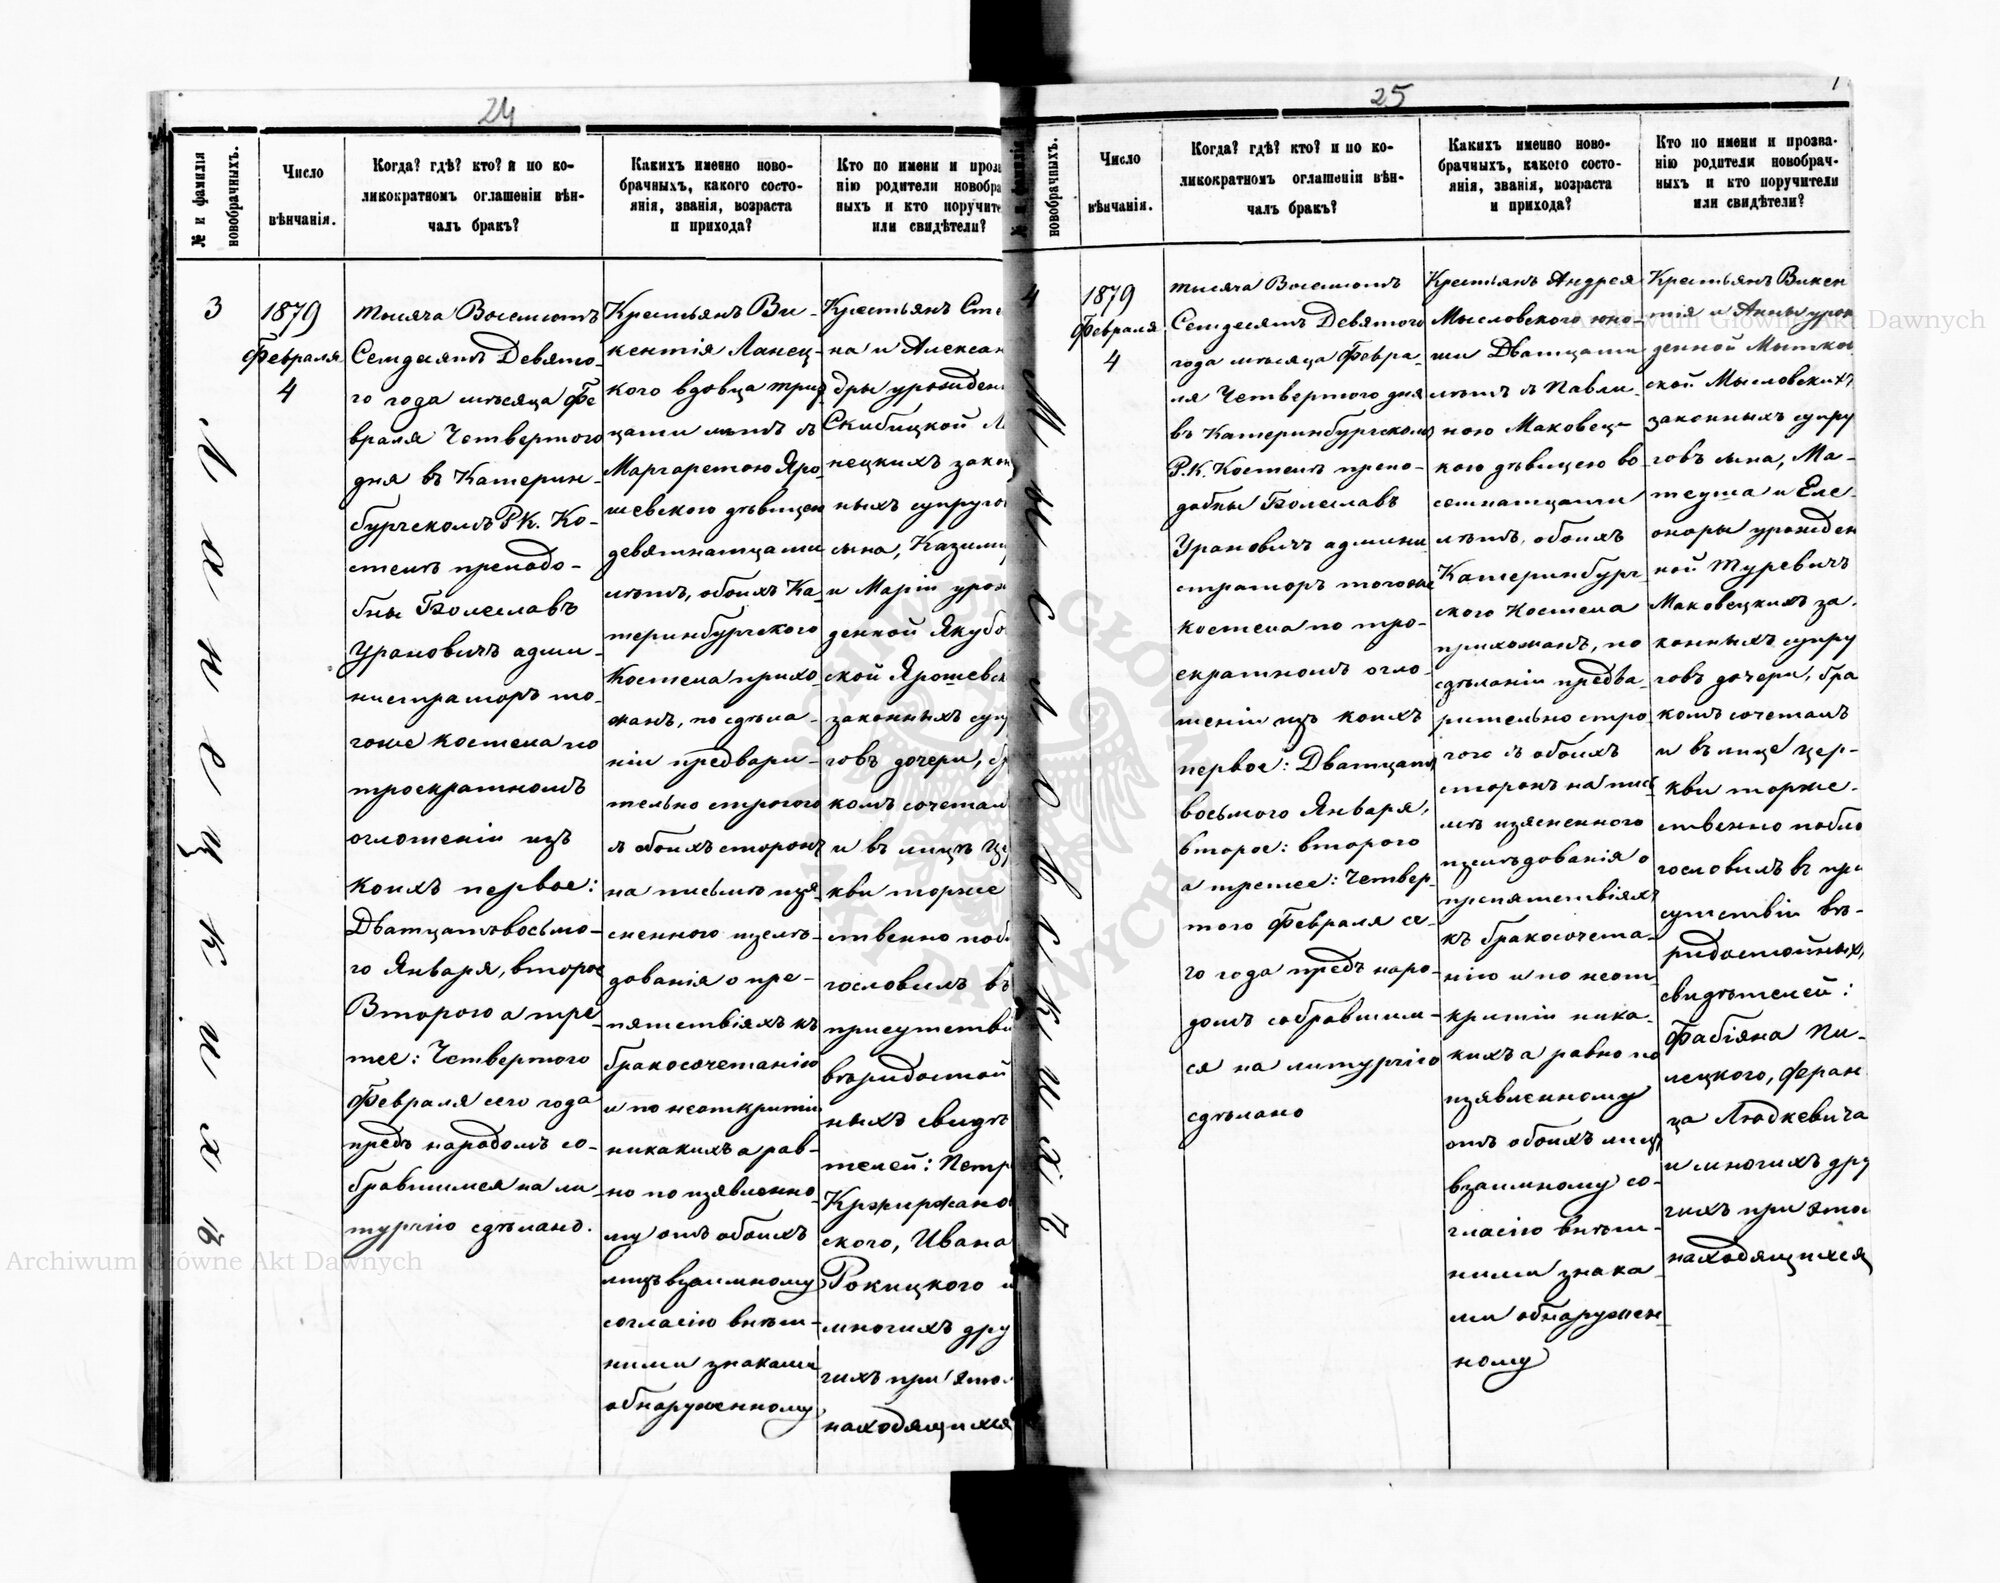 24
№ и фамилія новобрачныхъ.
Число вѣнчанія.
Когда? гдѣ? кто? и по ко-
ликократномъ оглашеніи вѣн-
чалъ бракъ?
Каких именно ново-
брачныхъ, какого состо-
янія, званія, возраста
и прихода?
Кто по имени и проз
нію родители новобра
ныхъ и кто поручит
или свидѣтели?
3
Ланецкихъ
1879
Февраля
4
тысяча Восемьсотъ
Семдесятъ Девято-
го года мѣсяца Фе
враля Четвертого
дня въ Катерин-
бургскомъ Р.К. Ко-
стелѣ преподо-
бны Болеславъ
Урановичъ адми-
нистраторъ то-
гоже костела по
троекратномъ
оглошеніи изъ
коихъ первое:
Дватцатьвосьмо-
го Января, второе
Второго а тре-
тее: Четвертого
Февраля сего года
предъ народомъ со-
бравшимся на ли-
тургію сдѣлано.
Крестьянъ Ви-
кентія Ланец-
кого вдовца трид
цати лѣтъ съ
Маргаретою Яро
шевскою дѣвицею
девятнатцати
лѣтъ, обоихъ Ка-
теринбургского
Костела прихо-
жанъ, по сдѣла-
ніи предвари-
тельно строгого
съ обоихъ сторонъ
на письмѣ изя-
сненного изслѣ-
дованія о пре-
пятствіяхъ къ
бракосочетанію
и по неоткрытіи
никакихъ а рав-
но по изявленно-
му отъ обоихъ
лицъ взаимному
согласію внѣш-
ними знаками
обнаруженному
Крестьянъ Сте
на и Алексан
дры урожден
Скибицкой Ла
нецкихъ закон
ныхъ супруго
сына, Казими
и Маріи урож
денной Якубо
ской Ярошевск
законныхъ супр
говъ дочери, бр
комъ сочеталъ
и въ лицѣ Це
кви торже
ственно побл
гословилъ въ
присутстві
вѣридостой
ныхъ свидѣ
телей: Петр
Кржиржано
ского, Ивана
Рокицкого и
многихъ дру
гихъ при это
находящихся
25
№ и фамилія новобрачныхъ.
Число вѣнчанія.
Когда? гдѣ? кто? и по ко-
ликократномъ оглашеніи вѣн-
чалъ бракъ?
Каких именно ново-
брачныхъ, какого состо-
янія, званія, возраста
и прихода?
Кто по имени и прозва-
нію родители новобрач-
ныхъ и кто поручители
или свидѣтели?
4
Мысловскихъ
1879
Февраля
4
тысяча Восемьсотъ
Семдесятъ Девятого
года мѣсяца Февра-
ля Четвертого дня
въ Катеринбургскомъ
Р.К. Костелѣ препо-
добны Болеславъ
Урановичъ админи
страторъ тогоже
костела по тро-
екратномъ огло-
шеніи изъ коихъ
первое: Дватцать
восьмого Января,
второе: второго
а третее: Четвер-
того Февраля се-
го года предъ наро-
домъ собравшим-
ся на литургію
сдѣлано
Крестьянъ Андрея
Мысловского юно-
ши Дватцати
лѣтъ съ Павли-
ною Маковец-
кою дѣвицею во
семнатцати
лѣтъ, обоихъ
Катеринбург
ского Костела
прихожанъ, по
сдѣланіи предва-
рительно стро-
гого съ обоихъ
сторонъ на пись
мѣ изясненного
изслѣдованія о
препятствіяхъ
къ бракосочета-
нію и по неот-
крытіи ника-
кихъ а равно по
изявленному
отъ обоихъ лицъ
взаимному со-
гласію внѣш-
ними знака-
ми обнаружен-
ному
Крестьянъ Викен
тія и Анны урож
денной Мытков
ской Мысловскихъ
законныхъ супру
говъ сына, Ма-
теуша и Еле-
оноры урожден
ной Туревичъ
Маковецкихъ за-
конныхъ супру
говъ дочери, бра
комъ сочеталъ
и въ лице цер-
кви торже-
ственно побла
гословилъ въ при
сутствіи вѣ-
ридостойныхъ
свидѣтелей:
Фабіяна Пи-
лецкого, Феран
ца Людкевича
и многихъ дру
гихъ при этом
находящихся
Archiwum Główne Akt Dawnych
Archiwum Główne Akt Dawnych
ARCHIWUM GŁÓWNE AKT DAWNYCH